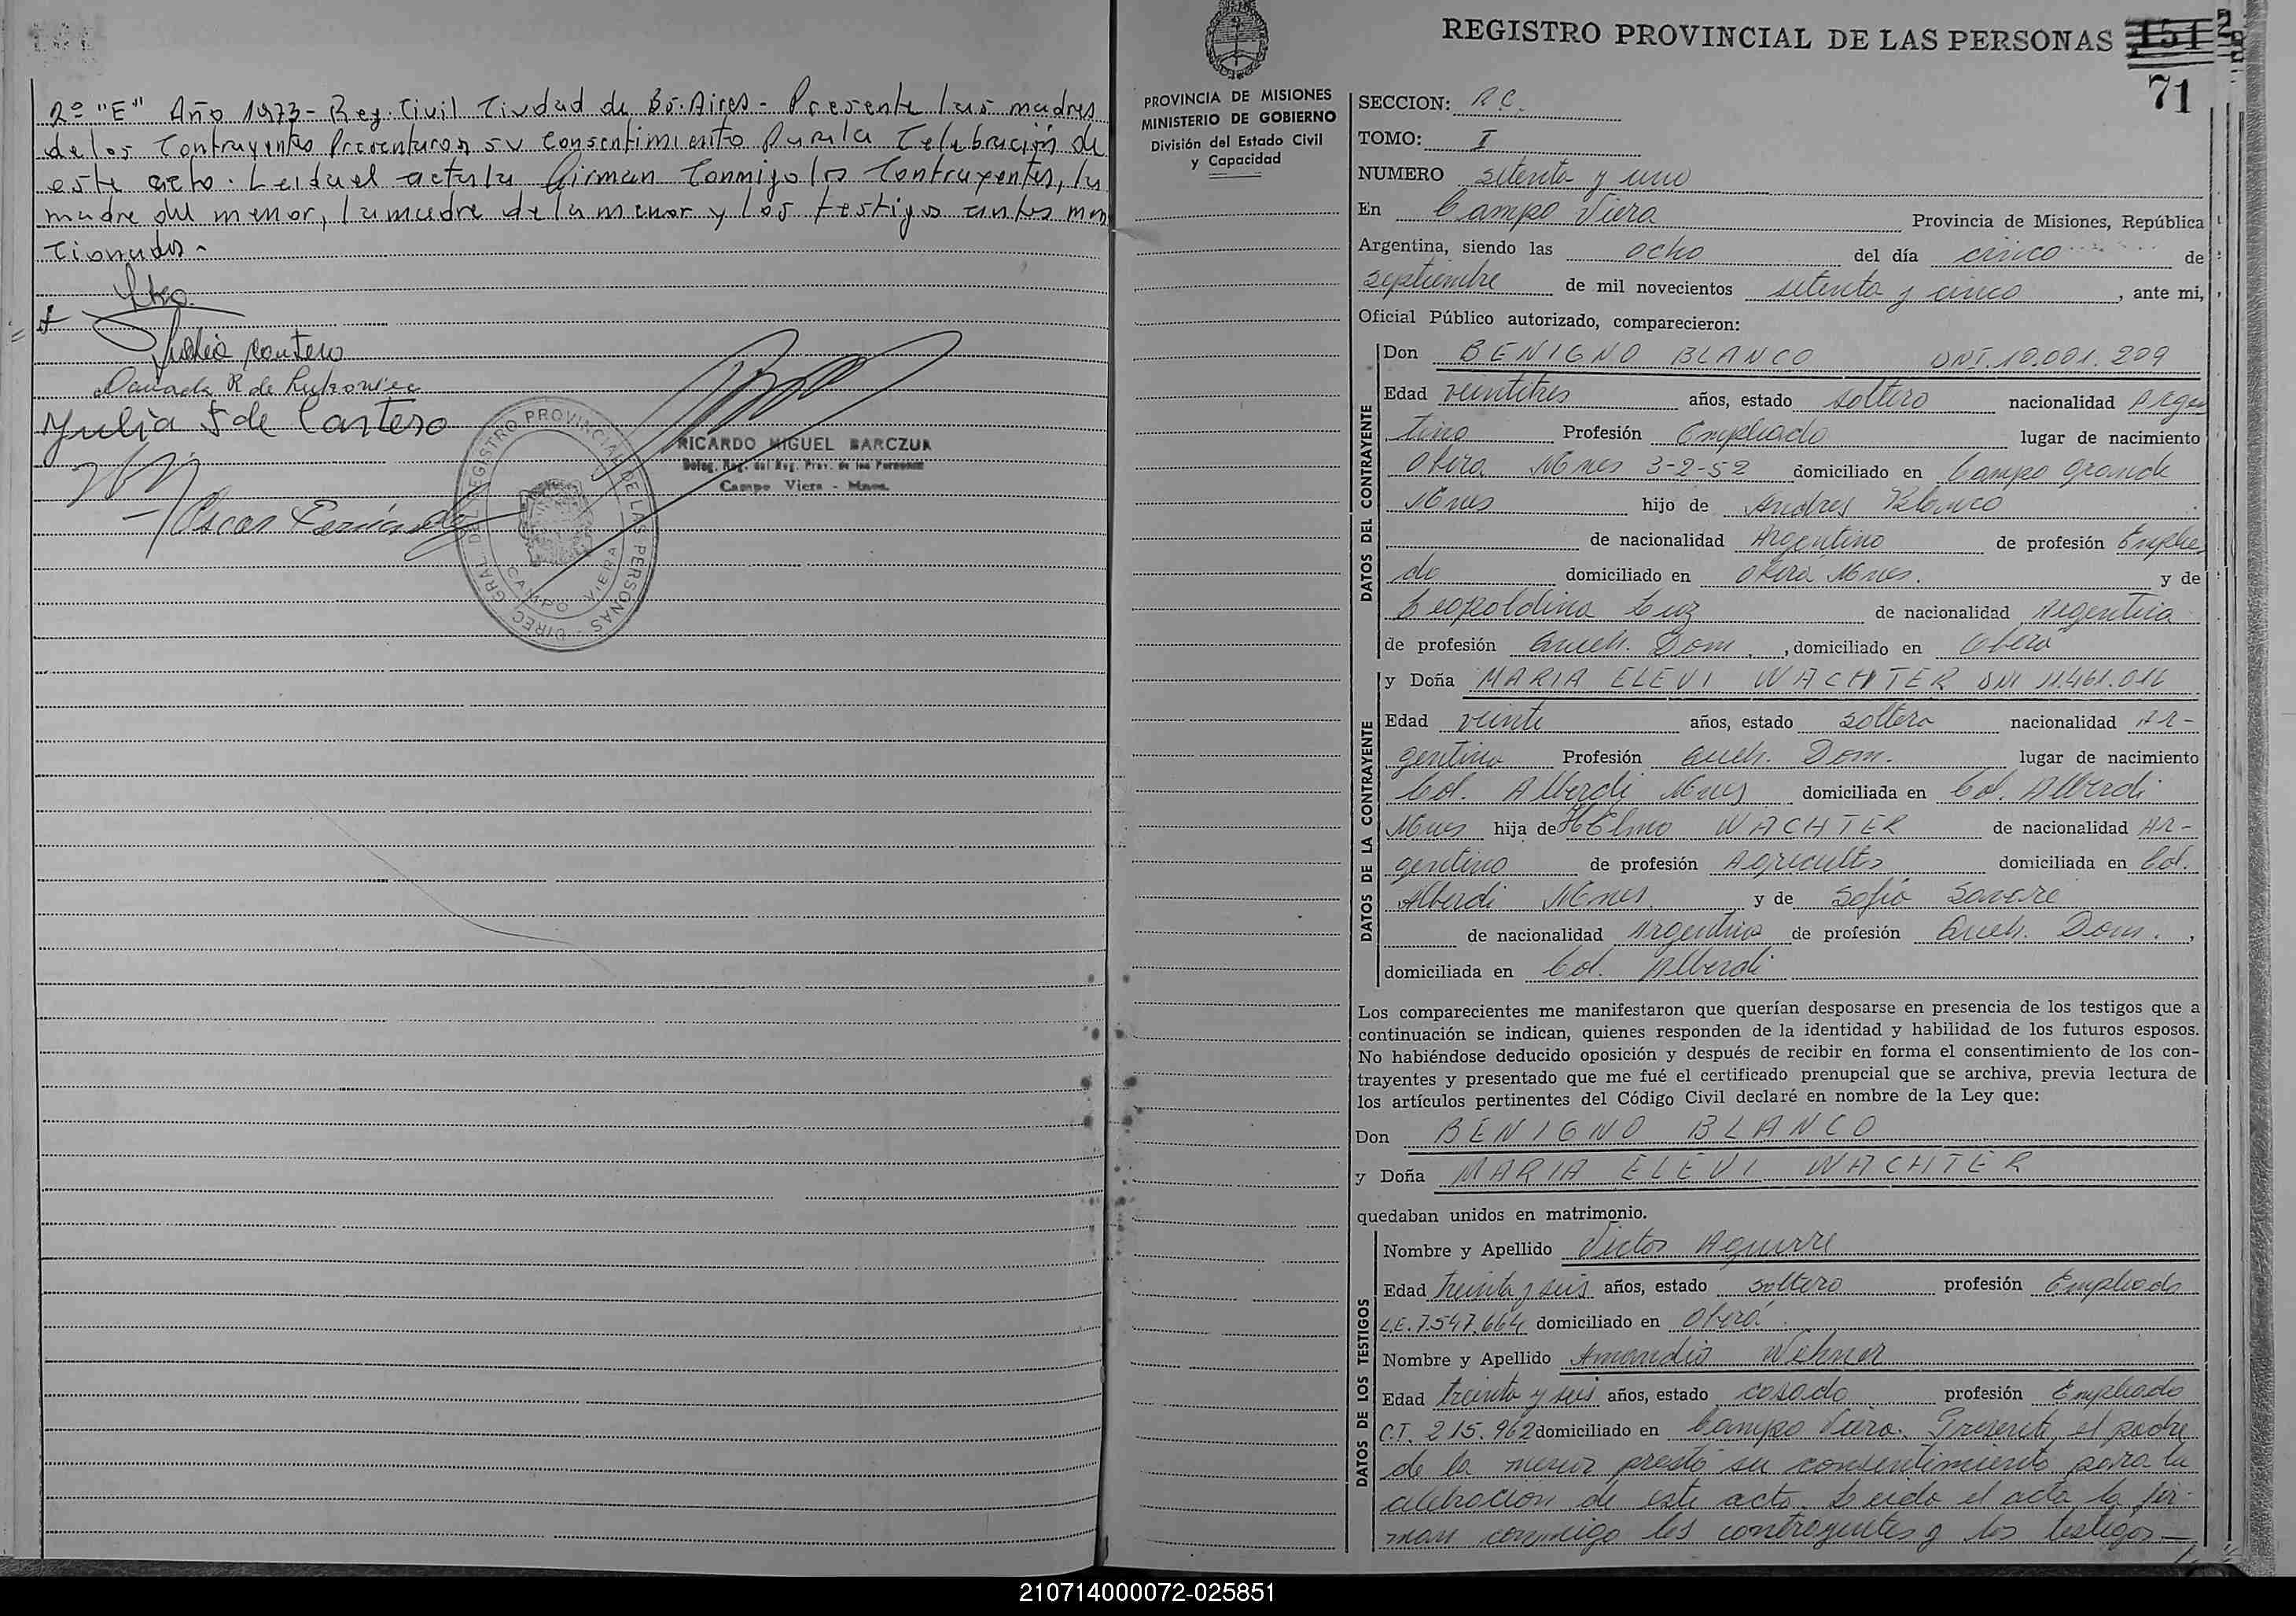 2º "E" Año 1973 - Reg. Civil Ciudad de Bs. Aires - Presente las madres
de los Contrayentes Presentaron su Consentimiento Para la Celebración de
este acto. Leida el acta la firman Conmigo los Contrayentes, la
madre del menor, la madre de la menor y los testigos antes men
cionados -
Julia F de Cantero
Oscar
DIREC. GRAL. DEL REGISTRO PROVINCIAL DE LAS PERSONAS
CAMPO VIERA
RICARDO MIGUEL BARCZUK
Deleg. Reg. del Reg. Prov. de las Personas
Campo Viera - Mnes.
REGISTRO PROVINCIAL DE LAS PERSONAS 151
71
PROVINCIA DE MISIONES
MINISTERIO DE GOBIERNO
División del Estado Civil
y Capacidad
SECCION: R C.
TOMO: I
NUMERO setenta y uno
En Campo Viera Provincia de Misiones, República
Argentina, siendo las ocho del día cinco de
septiembre de mil novecientos setenta y cinco, ante mi,
Oficial Público autorizado, comparecieron:
DATOS DEL CONTRAYENTE
Don BENIGNO BLANCO DNI. 10.001.209
Edad veintitres años, estado soltero nacionalidad Argen
tino Profesión Empleado lugar de nacimiento
Obera Mnes 3-2-52 domiciliado en Campo Grande
Mnes hijo de Andres Blanco
de nacionalidad Argentino de profesión Emplea
do domiciliado en Obera Mnes. y de
Leopoldina Luz de nacionalidad Argentina
de profesión Queh. Dom., domiciliado en Obera
DATOS DE LA CONTRAYENTE
y Doña MARIA ELEVI WACHTER DNI 11.461.016
Edad veinte años, estado soltera nacionalidad Ar-
gentina Profesión Queh. Dom. lugar de nacimiento
Col. Alberdi Mnes domiciliada en Col. Alberdi
Mnes hija de HElmo WACHTER de nacionalidad Ar-
gentino de profesión Agricultor domiciliada en Col.
Alberdi Mnes. y de Sofia
de nacionalidad Argentina de profesión Queh. Dom.,
domiciliada en Col. Alberdi
Los comparecientes me manifestaron que querían desposarse en presencia de los testigos que a
continuación se indican, quienes responden de la identidad y habilidad de los futuros esposos.
No habiéndose deducido oposición y después de recibir en forma el consentimiento de los con-
trayentes y presentado que me fué el certificado prenupcial que se archiva, previa lectura de
los artículos pertinentes del Código Civil declaré en nombre de la Ley que:
Don BENIGNO BLANCO
y Doña MARIA ELEVI WACHTER
quedaban unidos en matrimonio.
DATOS DE LOS TESTIGOS
Nombre y Apellido Victor Aguirre
Edad treinta y seis años, estado soltero profesión Empleado
L.E. 7.547.664 domiciliado en Oberá.
Nombre y Apellido Amandio
Edad treinta y seis años, estado casado profesión Empleado
C.I. 215.962 domiciliado en Campo Viera. Presente, el padre
de la menor prestó su consentimiento para la
celebracion de este acto. Leida el acta la fir-
man conmigo los contrayentes y los testigos-
210714000072-025851